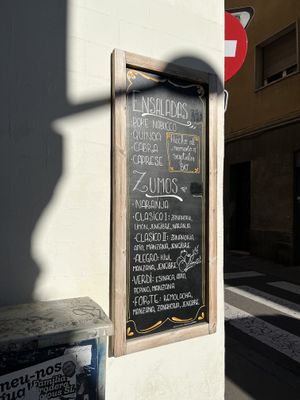 ENSALADAS
·POPE NABUCCO
·QUINOA
·CABRA
·CAPRESE
Hecho al
momento
BIO
ZUMOS
·NARANJA
·CLASICO I: ZANAHORIA,
LIMON, JENGIBRE, NARANJA
·CLASICO II: ZANAHORIA,
APIO, MANZANA, JENGIBRE
·ALEGRO: KIWI,
MANZANA, JENGIBRE
·VERDI: ESPINACA, APIO,
PEPINO, MANZANA
·FORTE: REMOLACHA,
MANZANA, ZANAHORIA, JENGIBRE
neu-nos
Família